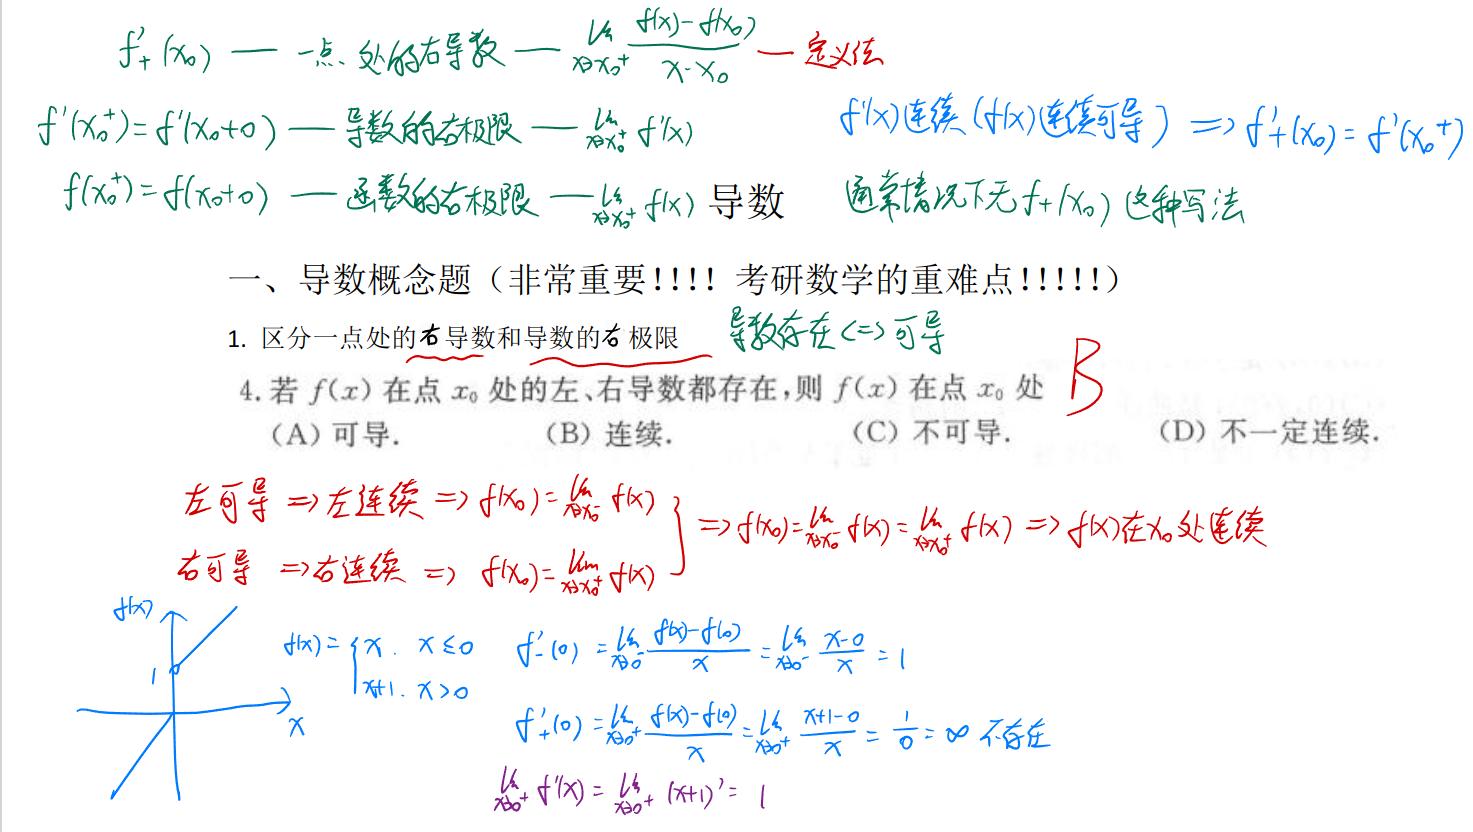 f'₊(x₀) — 一点处的右导数 — lim x→x₀⁺ (f(x)-f(x₀))/(x-x₀) — 定义法
f'(x₀⁺)=f'(x₀+0) — 导数的右极限 — lim x→x₀⁺ f'(x)
f'(x)连续(f(x)连续可导) ⇒ f'₊(x₀)=f'(x₀⁺)
f(x₀⁺)=f(x₀+0) — 函数的右极限 — lim x→x₀⁺ f(x)
导数
通常情况下无f₊(x₀)这种写法
一、导数概念题（非常重要!!!! 考研数学的重难点!!!!!）
1. 区分一点处的右导数和导数的右极限
导数存在⇔可导
4.若 f(x) 在点 x₀ 处的左、右导数都存在,则 f(x) 在点 x₀ 处 B
(A) 可导. (B) 连续. (C) 不可导. (D) 不一定连续.
左可导 ⇒ 左连续 ⇒ f(x₀)=lim x→x₀⁻ f(x)
右可导 ⇒ 右连续 ⇒ f(x₀)=lim x→x₀⁺ f(x)
⇒ f(x₀)=lim x→x₀⁻ f(x)=lim x→x₀⁺ f(x) ⇒ f(x)在x₀处连续
f(x)
1
x
f(x)={x. x≤0
x+1. x>0
f'₋(0) =lim x→0⁻ (f(x)-f(0))/x =lim x→0⁻ (x-0)/x = 1
f'₊(0) =lim x→0⁺ (f(x)-f(0))/x =lim x→0⁺ (x+1-0)/x = 1/0 = ∞ 不存在
lim x→0⁺ f'(x) = lim x→0⁺ (x+1)' = 1